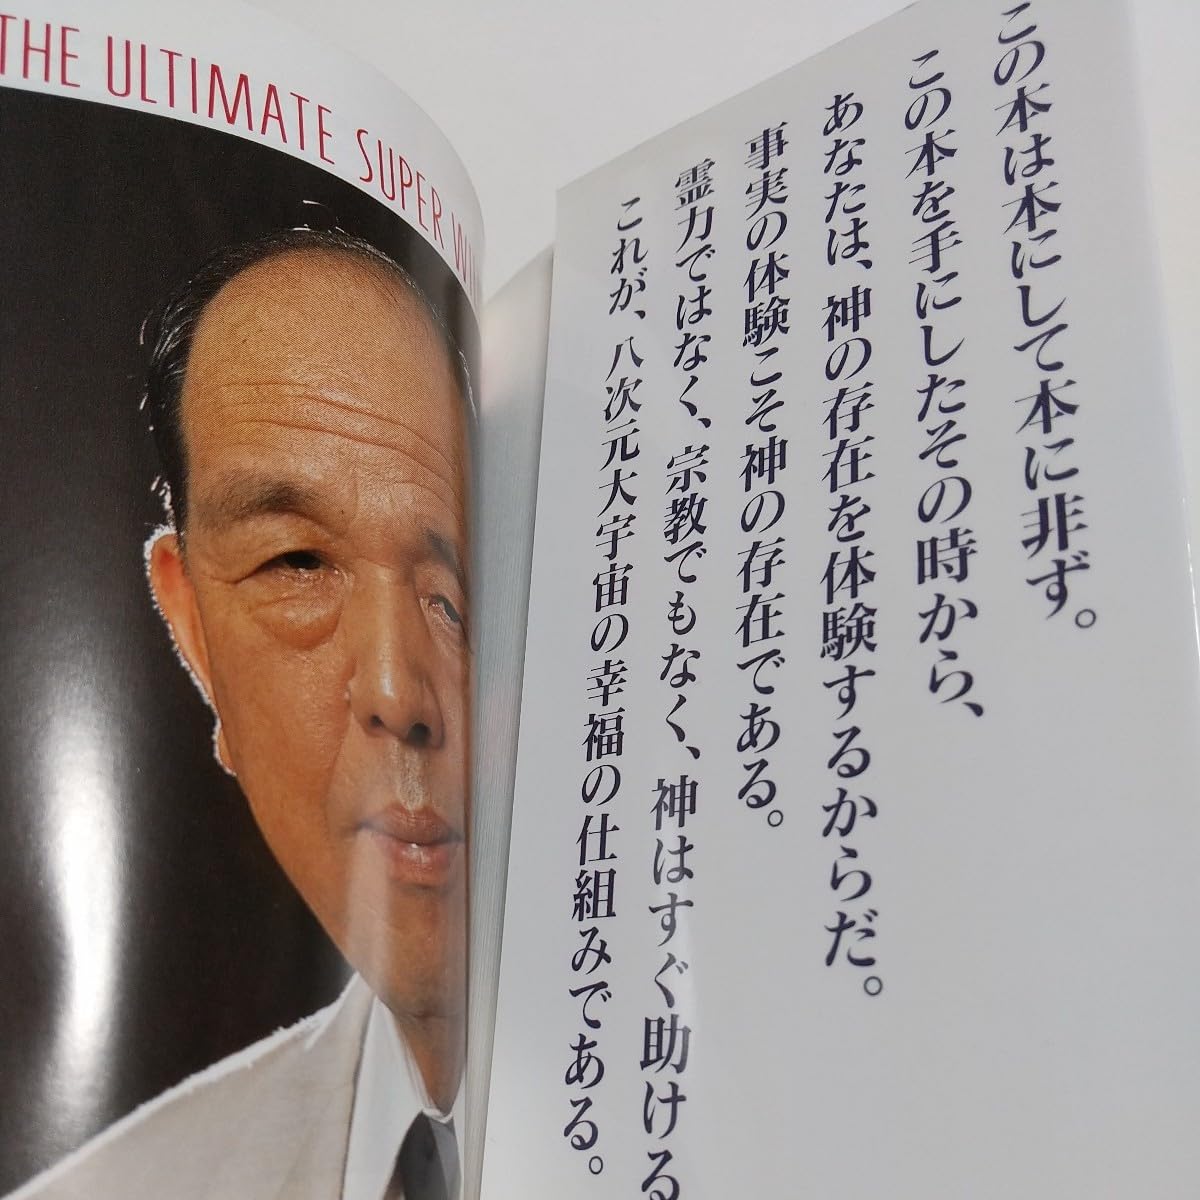 THE ULTIMATE SUPER
この本は本にして本に非ず。
この本を手にしたその時から、
あなたは、神の存在を体験するからだ。
事実の体験こそ神の存在である。
霊力ではなく、宗教でもなく、神はすぐ助ける
これが、八次元大宇宙の幸福の仕組みである。